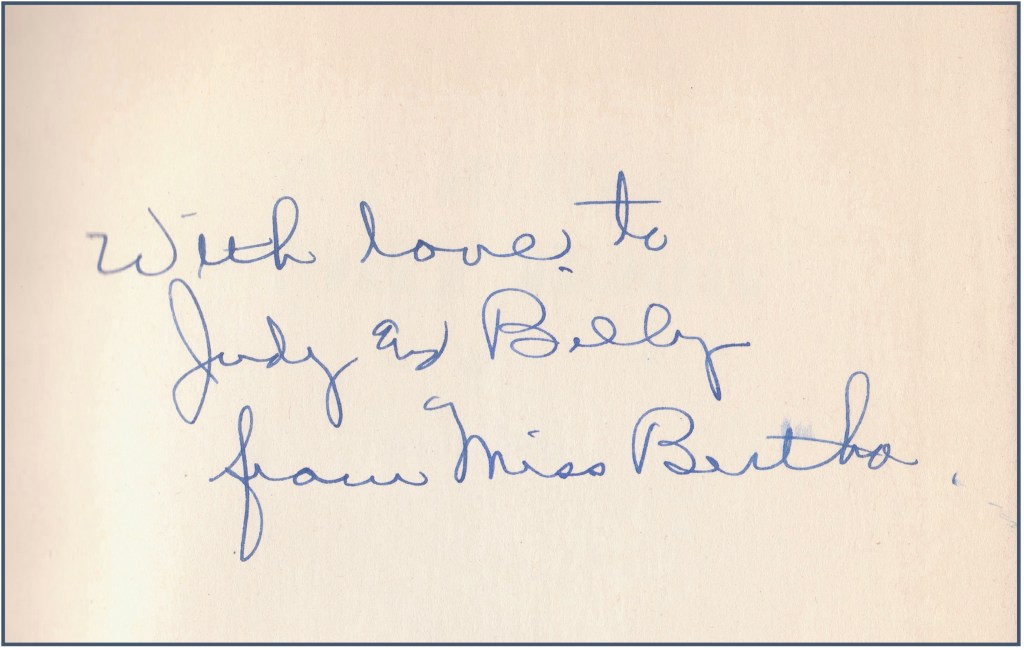 With love, to
Judy and Billy
from Miss Bertha.